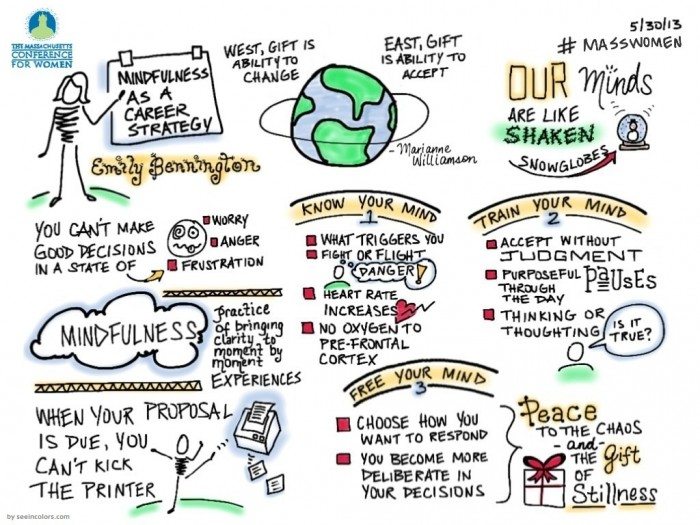 THE MASSACHUSETTS
CONFERENCE
FOR WOMEN
MINDFULNESS
AS A
CAREER
STRATEGY
Emily Bennington
WEST, GIFT IS
ABILITY TO
CHANGE
EAST, GIFT
IS ABILITY TO
ACCEPT
- Marianne
Williamson
5/30/13
# MASSWOMEN
OUR Minds
ARE LIKE
SHAKEN
SNOWGLOBES
YOU CAN'T MAKE
GOOD DECISIONS
IN A STATE OF
WORRY
ANGER
FRUSTRATION
MINDFULNESS
practice
of bringing
clarity to
moment by
moment
EXPERIENCES
WHEN YOUR PROPOSAL
IS DUE, YOU
CAN'T KICK
THE PRINTER
KNOW YOUR MIND
1
WHAT TRIGGERS YOU
FIGHT OR FLIGHT
DANGER!
HEART RATE
INCREASES
NO OXYGEN TO
PRE-FRONTAL
CORTEX
TRAIN YOUR MIND
2
ACCEPT WITHOUT
JUDGMENT
PURPOSEFUL PAUSES
THROUGH
THE DAY
THINKING OR
THOUGHTING
IS IT
TRUE?
FREE YOUR MIND
3
CHOOSE HOW YOU
WANT TO RESPOND
YOU BECOME MORE
DELIBERATE IN
YOUR DECISIONS
Peace
TO THE CHAOS
-and-
THE Gift
OF
Stillness
by seeincolors.com